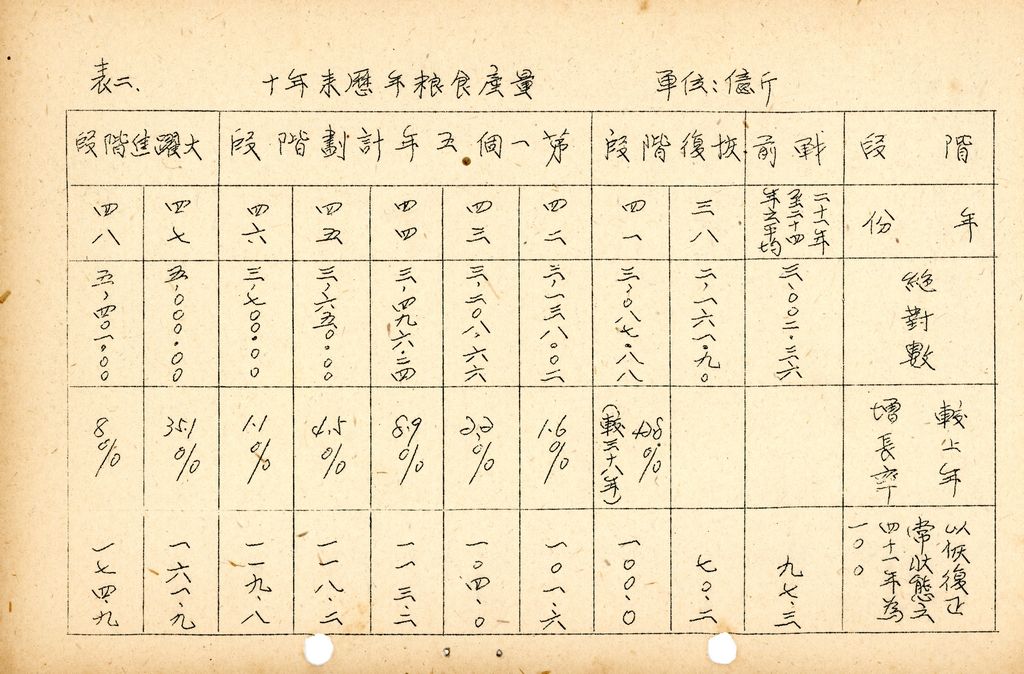 表二. 十年来歷年粮食產量 單位:億斤
階段
戰前
恢復階段
第一個五年計劃階段
大躍進階段
年份
二十一年
至二十四
年之平均
三八
四一
四二
四三
四四
四五
四六
四七
四八
絕對數
三,〇〇二.三六
二,一六一.九〇
三,〇八七.八八
三,一三八.〇二
三,二〇八.六六
三,四九六.三四
三,六五〇.〇〇
三,七〇〇.〇〇
五,〇〇〇.〇〇
五,四〇一.〇〇
較上年
增長率
42.8%
(較三十八年)
1.6%
2.2%
8.9%
4.5%
1.1%
35.1%
8%
以恢復正
常狀態之
四十一年為
一〇〇
九七.三
七〇.二
一〇〇.〇
一〇一.六
一〇四.〇
一一三.二
一一八.二
一一九.八
一六一.九
一七四.九